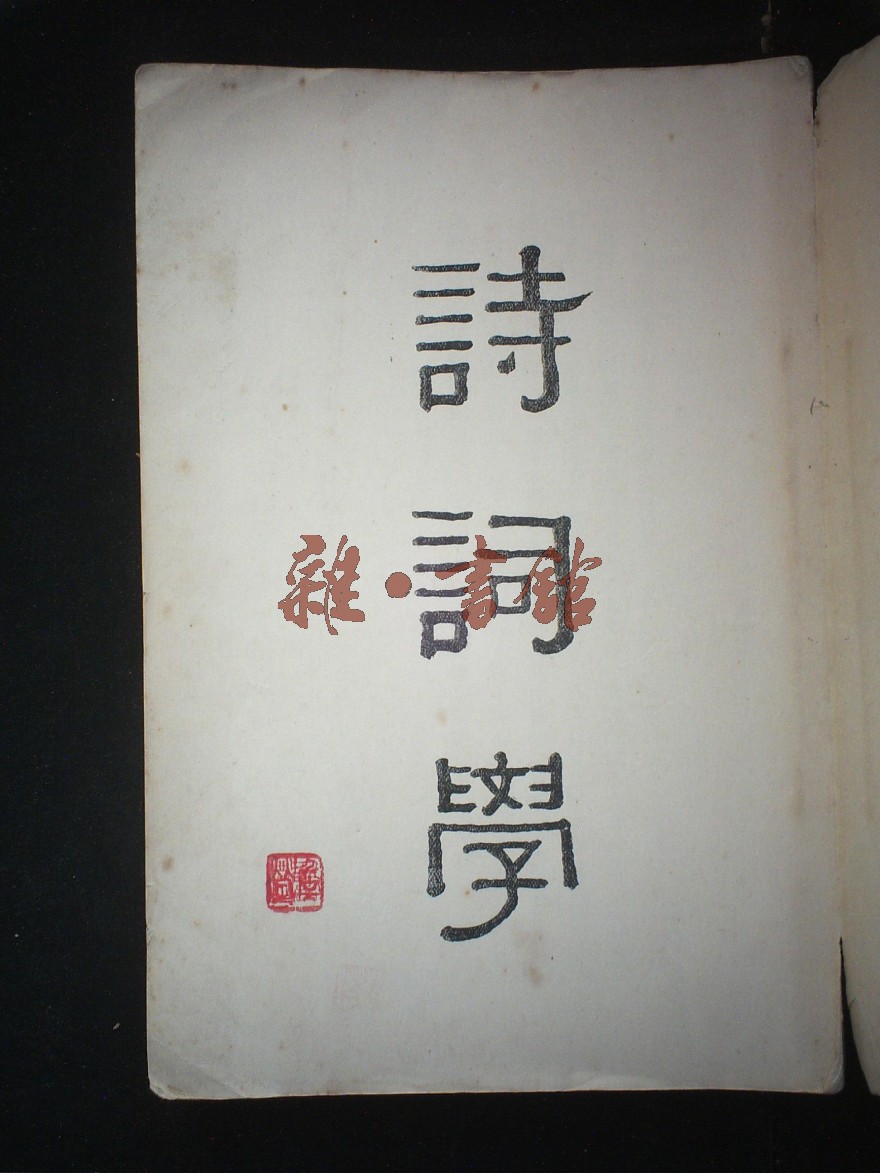 詩詞學
雜·書館